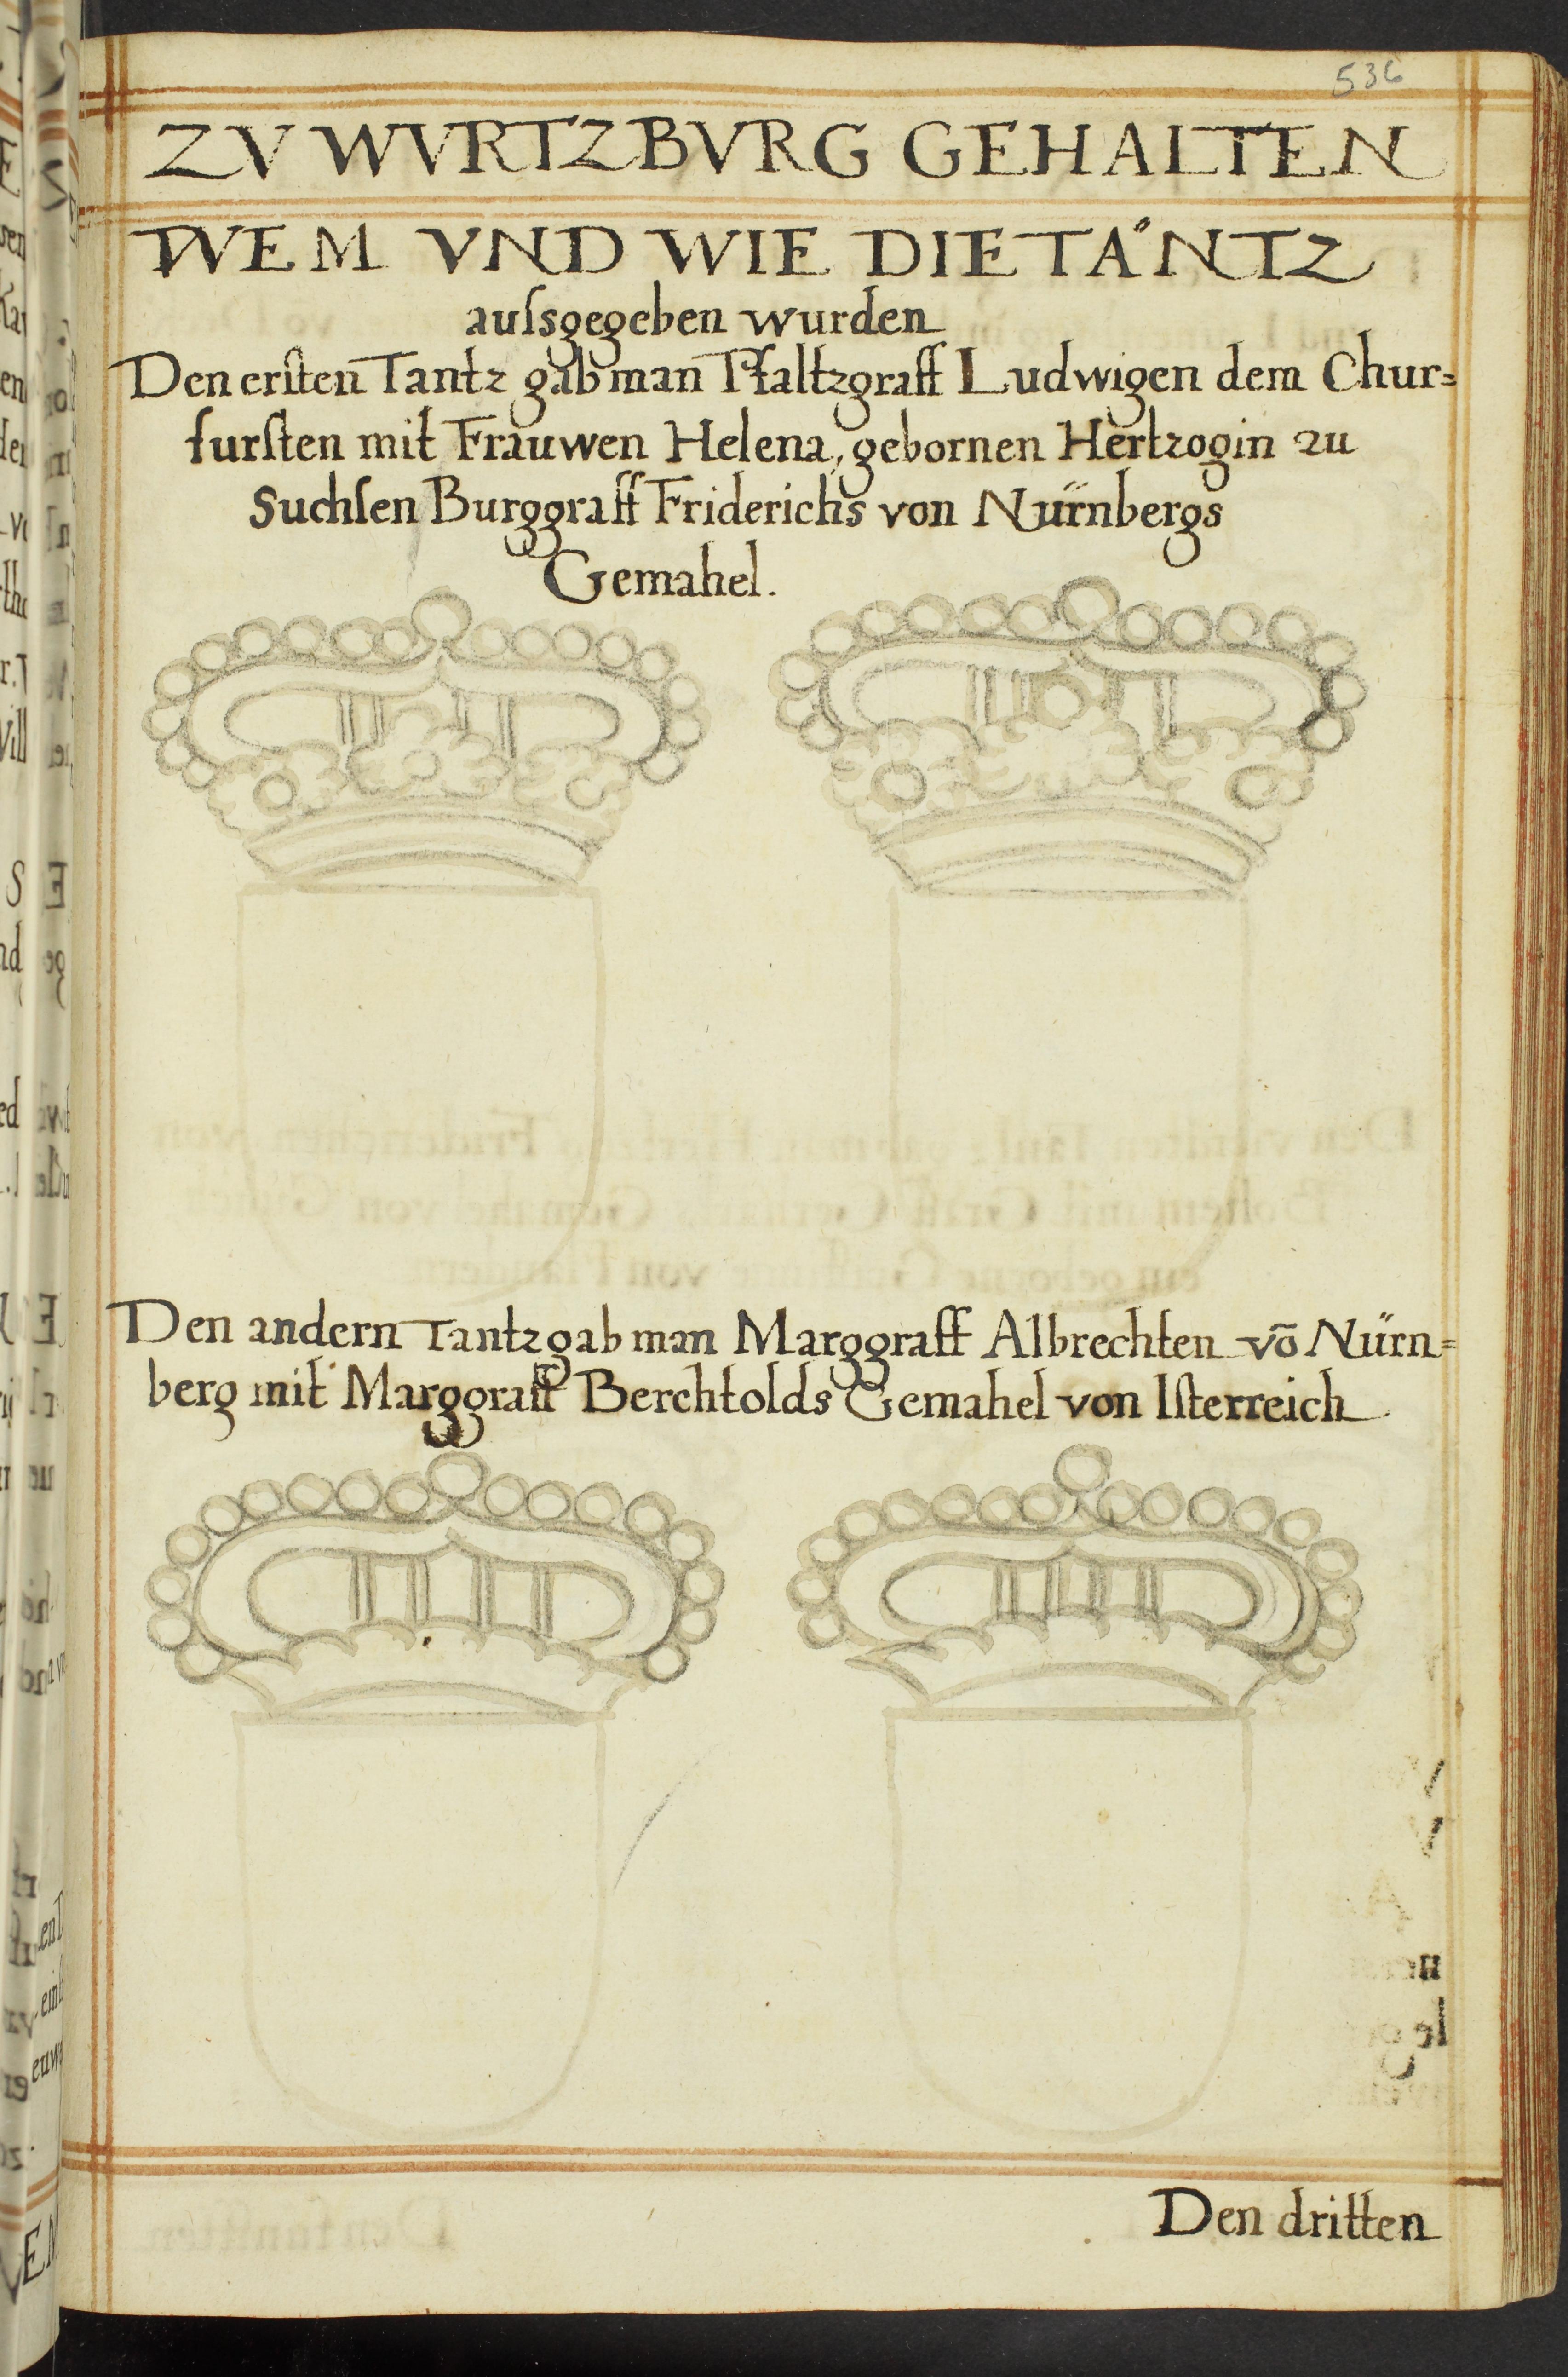 536
ZV WVRTZBVRG GEHALTEN
WEM VND WIE DIE TÄNTZ
ausſgegeben wurden
Den erſten Tantz gab man Pfaltzgraff Ludwigen dem Chur=
furſten mit Frauwen Helena, gebornen Hertzogin zu
Suchſen Burggraff Friderichs von Nürnbergs
Gemahel.
Den andern Tantz gab man Marggraff Albrechten vō Nürn=
berg mit Marggraff Berchtolds Gemahel von Iſterreich
Den dritten